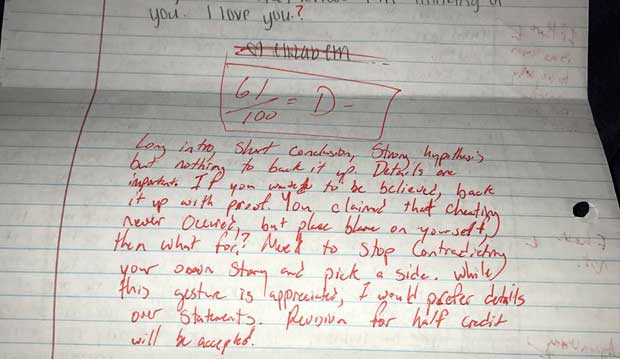 you. I love you.?
61/100 = D-
Long intro, Short Conclusion, Strong hypothesis
but nothing to back it up. Details are
important. If you want to be believed, back
it up with proof. You claimed that cheating
never occured, but place blame on yourself,
then what for? Need to stop Contradicting
your own story and pick a side. While
this gesture is appreciated, I would prefer details
over statements. Revision for half credit
will be accepted.